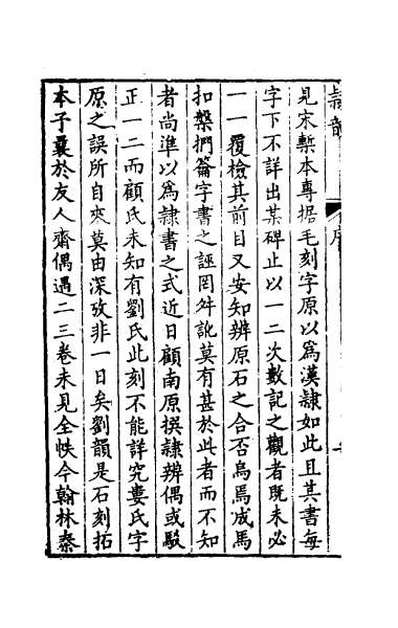 隷韻
序
見宋槧本專据毛刻字原以為漢隷如此且其書每
字下不詳出某碑止以一二次數記之觀者既未必
一一覆檢其前目又安知辨原石之合否烏焉成馬
扣槃捫籥字書之誣罔舛訛莫有甚於此者而不知
者尚準以為隷書之式近日顧南原撰隷辨偶或駁
正一二而顧氏未知有劉氏此刻不能詳究婁氏字
原之誤所自來莫由深攷非一日矣劉韻是石刻拓
本予曩於友人齋偶遇二三卷未見全帙今翰林秦